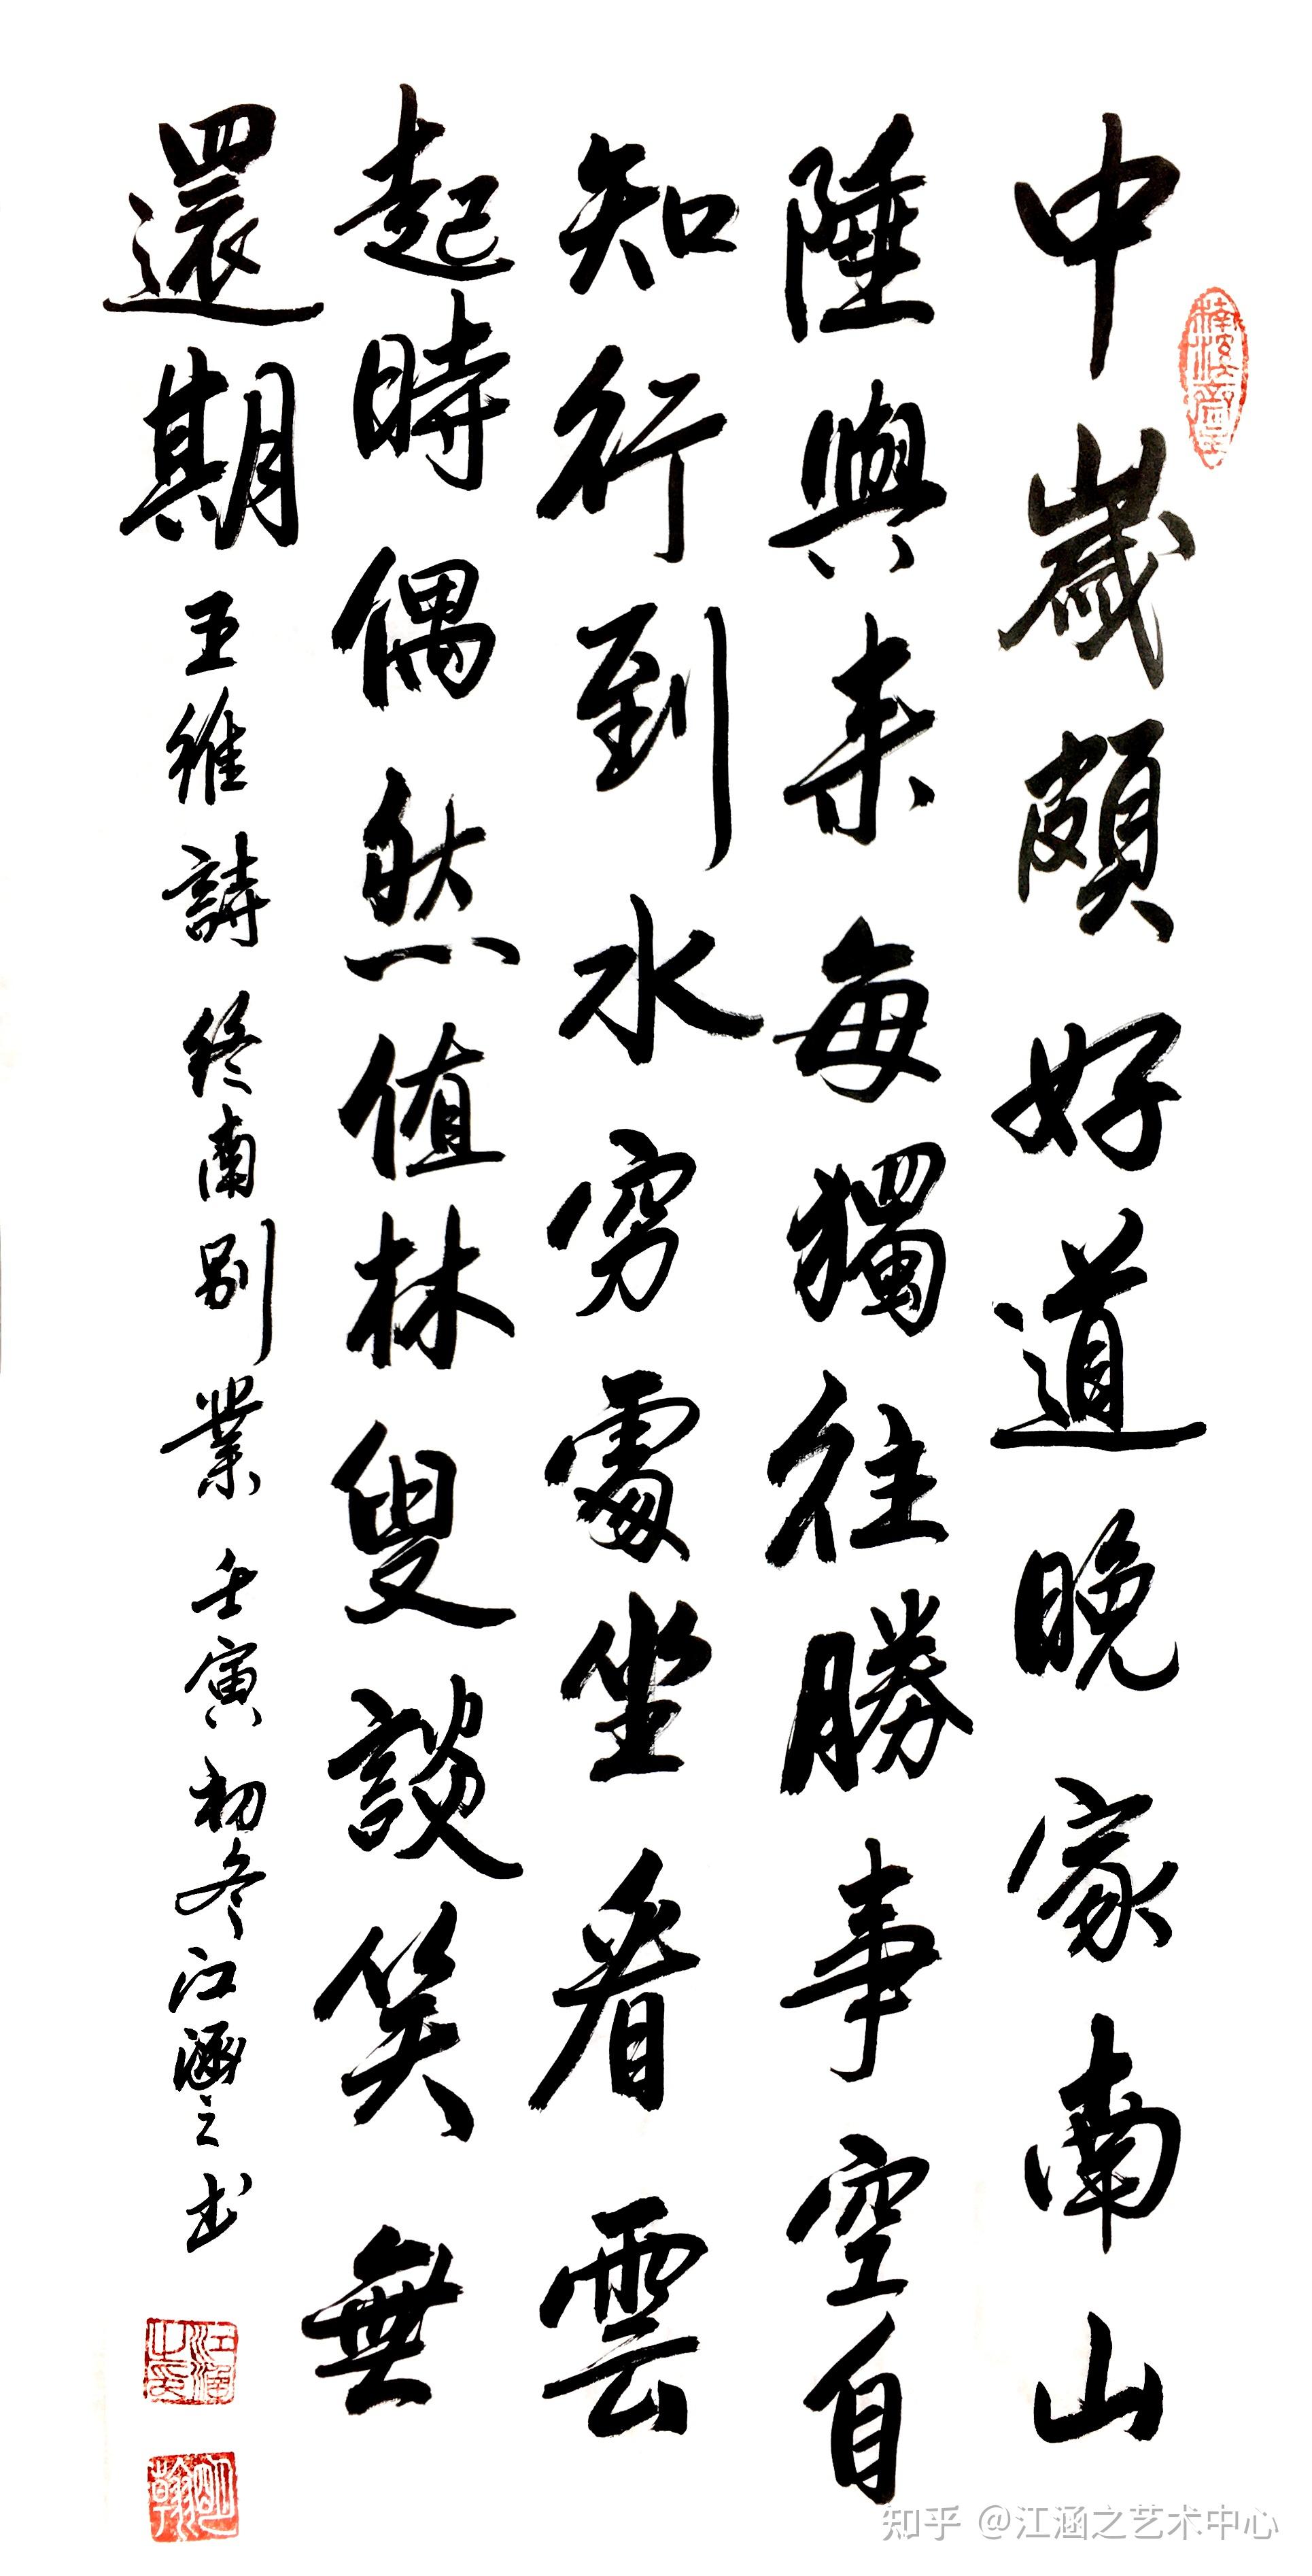 中歲頗好道晚家南山
陲興来每獨往勝事空自
知行到水穷處坐看雲
起時偶然值林叟談笑無
還期 王維詩終南別業 壬寅初冬江涵之书
江涵之印
知乎 @江涵之艺术中心